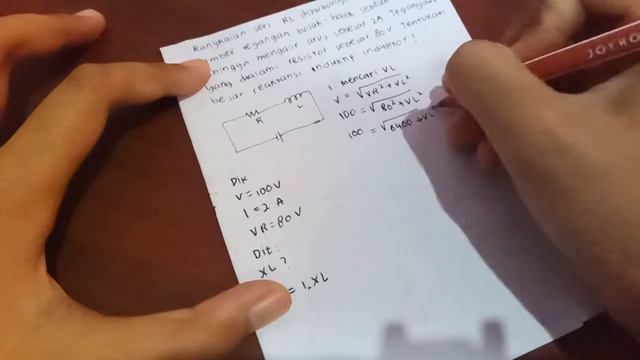 Rangkaian seri RL dihubungkan
mber tegangan bolak-balik sebesar
hingga mengalir arus sebesar 2A. Tegangan
yang dialami resistor sebesar 80V Tentukan
besar reaktansi induktif induktor!
R
L
Dik:
V = 100V
I = 2 A
VR = 80 V
Dit:
XL?
= I.XL
1 mencari VL
V = √VR² + VL²
100 = √80² + VL²
100 = √6400 + VL
JOYKO